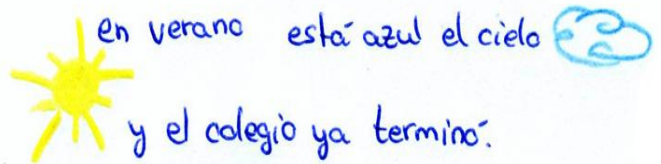 en verano está azul el cielo
y el colegio ya terminó.